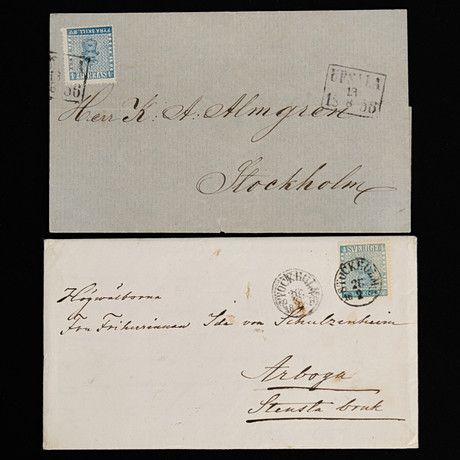 SVERIGE
FYRA SKILL. Bco
UPSALA
13
18 8 56
Herr K. A. Almgren
Stockholm
SVERIGE
STOCKHOLM
26
2
STOCKHOLM
26
2
Högwälborna
Fru Friherinnan Ida von Schulzenheim
Arboga
Stensta bruk